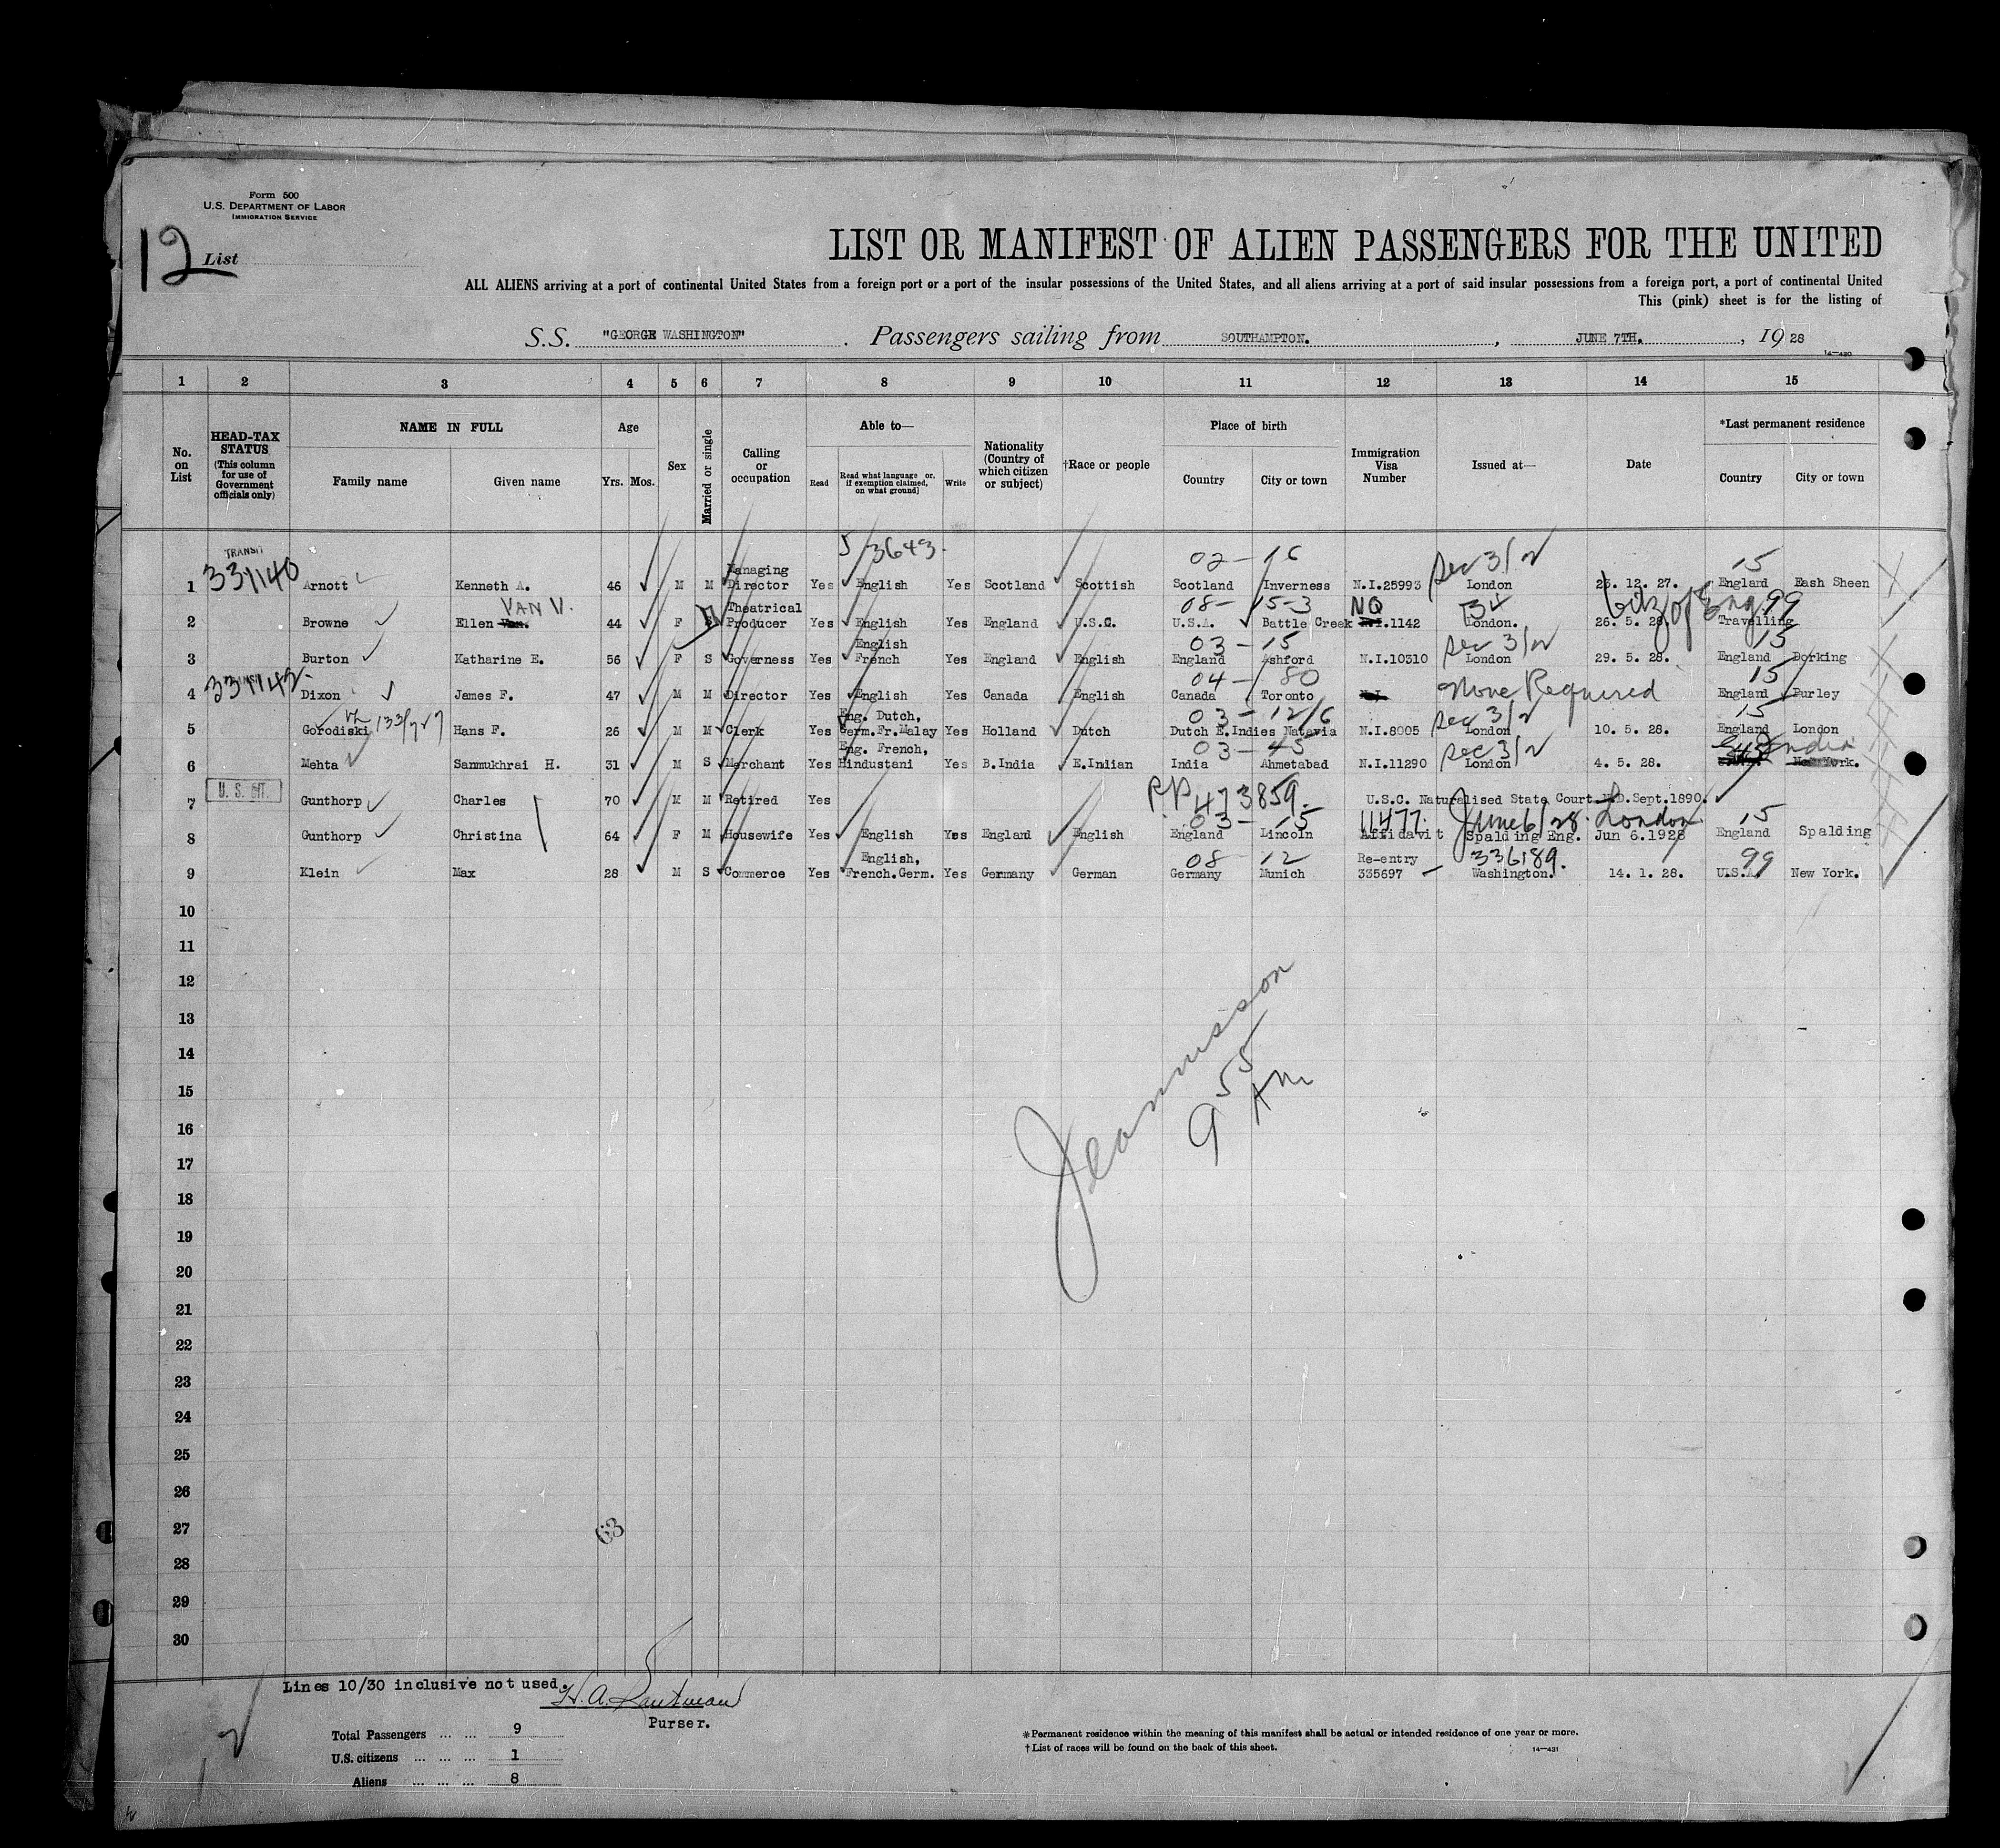 Form 500
U.S. DEPARTMENT OF LABOR
IMMIGRATION SERVICE
12 List
LIST OR MANIFEST OF ALIEN PASSENGERS FOR THE UNITED
ALL ALIENS arriving at a port of continental United States from a foreign port or a port of the insular possessions of the United States, and all aliens arriving at a port of said insular possessions from a foreign port, a port of continental United
This (pink) sheet is for the listing of
S.S. "GEORGE WASHINGTON" . Passengers sailing from SOUTHAMPTON. , JUNE 7TH. , 1928
14-430
1 2 3 4 5 6 7 8 9 10 11 12 13 14 15
No. on List
HEAD-TAX STATUS (This column for use of Government officials only)
NAME IN FULL Family name Given name
Age Yrs. Mos.
Sex
Married or single
Calling or occupation
Able to— Read Read what language or, if exemption claimed, on what ground] Write
Nationality (Country of which citizen or subject)
†Race or people
Place of birth Country City or town
Immigration Visa Number
Issued at—
Date
*Last permanent residence Country City or town
5/3643. 02-16 Sec 3/2 15
1 TRANSIT 331140 Arnott Kenneth A. 46 M M Managing Director Yes English Yes Scotland Scottish Scotland Inverness N.I.25993 London 23. 12. 27. England Eash Sheen
VAN V. 08-15-3 NQ 34 Citz of Eng 99
2 Browne Ellen Van. 44 F S Theatrical Producer Yes English Yes England U.S.C. U.S.A. Battle Creek N.I.1142 London. 26. 5. 28. Travelling
03-15 Sec 3/2 15
3 Burton Katharine E. 56 F S Governess Yes English French Yes England English England Ashford N.I.10310 London 29. 5. 28. England Dorking
04-80 15
4 331142. Dixon James F. 47 M M Director Yes English Yes Canada English Canada Toronto N.I. None Required England Purley
03-12/6 Sec 3/2 15
5 Gorodiski Hans F. 26 M M Clerk Yes Eng. Dutch, Germ.Fr.Malay Yes Holland Dutch Dutch E.Indies Natavia N.I.8005 London 10. 5. 28. England London
03-45 Sec 3/2 India
6 Mehta Sanmukhrai H. 31 M S Merchant Yes Eng. French, Hindustani Yes B.India E.Indian India Ahmetabad N.I.11290 London 4. 5. 28. New York.
7 U. S. CIT. Gunthorp Charles 70 M M Retired Yes PP 473859. U.S.C. Naturalised State Court N.D.Sept.1890.
03-15 11477. June 6/28. London 15
8 Gunthorp Christina 64 F M Housewife Yes English Yes England English England Lincoln Affidavit Spalding Eng. Jun 6.1928 England Spalding
08 12 336189. 99
9 Klein Max 28 M S Commerce Yes English, French.Germ. Yes Germany German Germany Munich Re-entry 335697 Washington. 14. 1. 28. U.S.A. New York.
10
11
12
13
14
15
16
17
18
19
20
21
22
23
24
25
26
27
28
29
30
9 55 AM
63
Lines 10/30 inclusive not used.
Purser.
Total Passengers ... ... 9
U.S. citizens ... ... ... 1
Aliens ... ... ... 8
*Permanent residence within the meaning of this manifest shall be actual or intended residence of one year or more.
†List of races will be found on the back of this sheet.
14-431